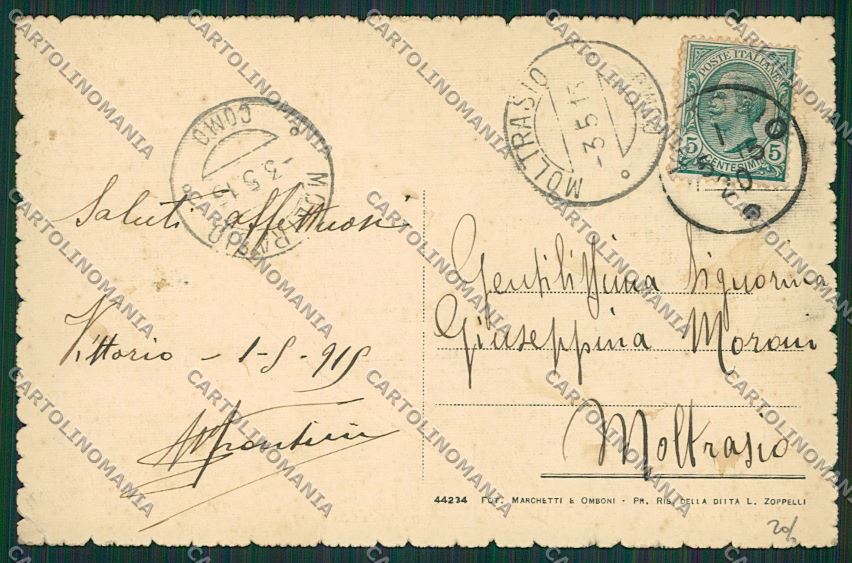 MOLTRASIO
COMO
-3.5.15
MOLTRASIO
COMO
-3.5.15
POSTE ITALIANE
5 CENTESIMI 5
Saluti affettuosi
Vittorio - 1-5-915
Gentilissima Signorina
Giuseppina Morani
Moltrasio
44234 FOT. MARCHETTI E OMBONI - PR. RIS. DELLA DITTA L. ZOPPELLI
CARTOLINOMANIA